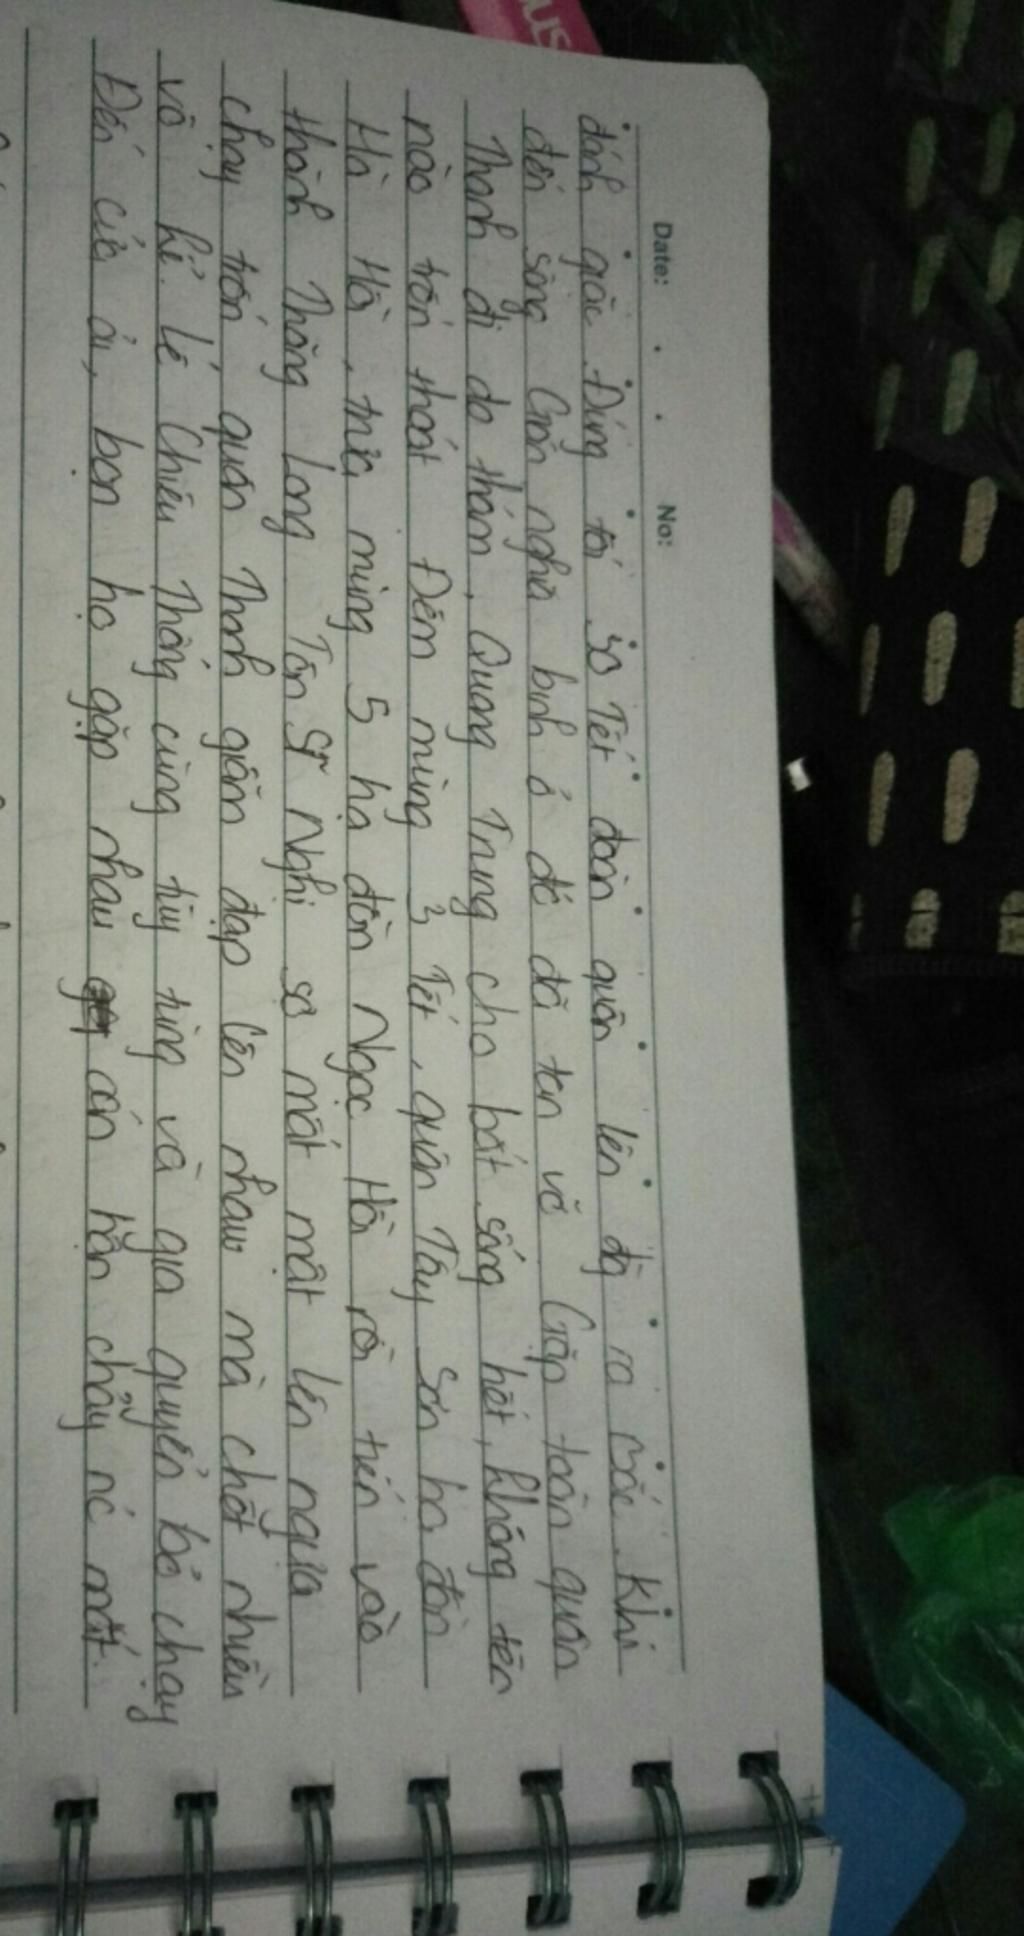 Date: No:
đánh giặc. Đúng tối 30 Tết đoàn quân lên đg ra Bắc. Khi
đến sông Gián nghĩa binh ở đó đã tan vỡ. Gặp toán quân
Thanh đi do thám, Quang Trung cho bắt sống hết, không tên
nào trốn thoát. Đêm mùng 3 Tết, quân Tây Sơn hạ đồn
Hà Hồi, trưa mùng 5 hạ đồn Ngọc Hồi rồi tiến vào
thành Thăng Long. Tôn Sĩ Nghị sợ mất mật lên ngựa
chạy trốn, quân Thanh giẫm đạp lên nhau mà chết nhiều
vô kể. Lê Chiêu Thống cùng tùy tùng và gia quyến bỏ chạy
Đến cửa ải, bọn họ gặp nhau oán hận chảy nc mắt.